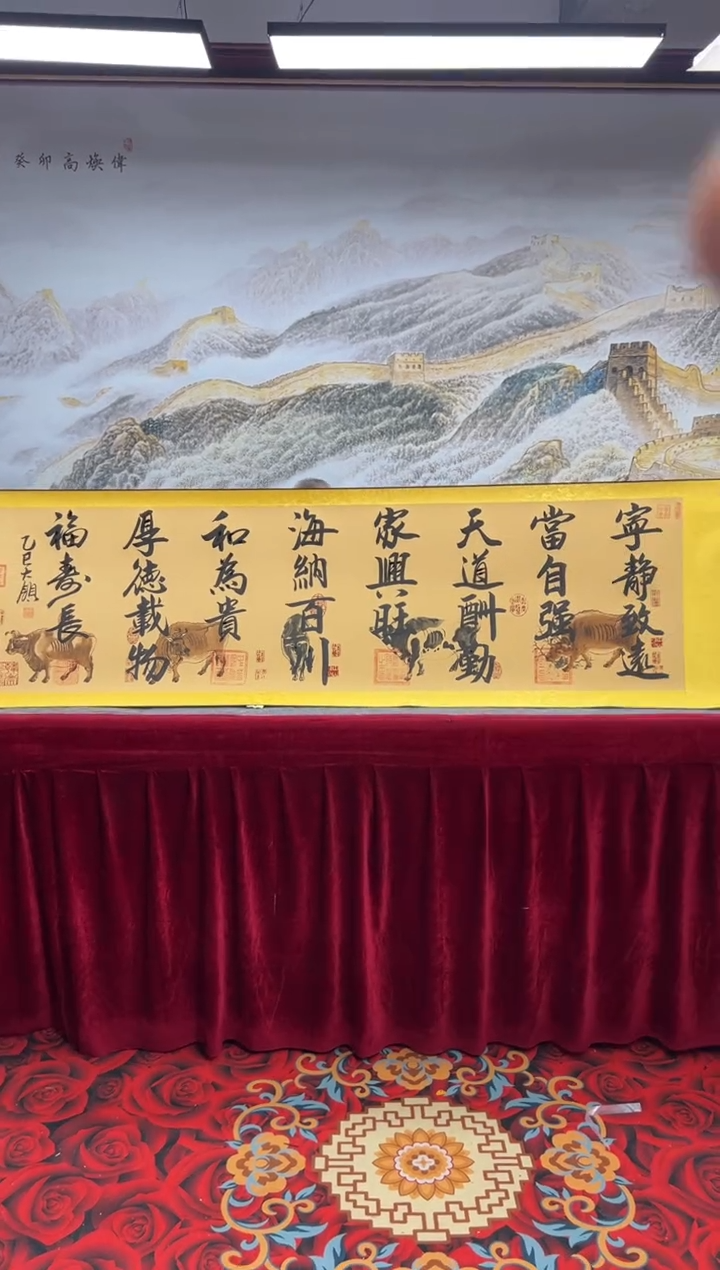 癸卯高焕偉
寧静致遠
當自强
天道酬勤
家興旺
海納百川
和為貴
厚德載物
福壽長
乙巳大願